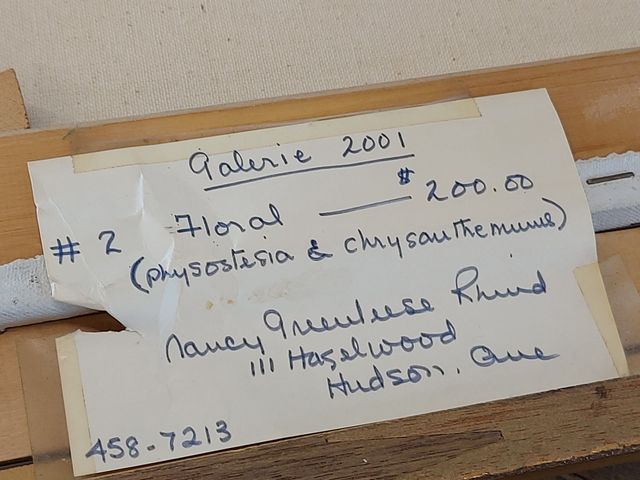 Galerie 2001
# 2 Floral $ 200.00
(physostesia & chrysanthemums)
Nancy Greenleese Rhind
111 Hazelwood
Hudson, Que
458-7213